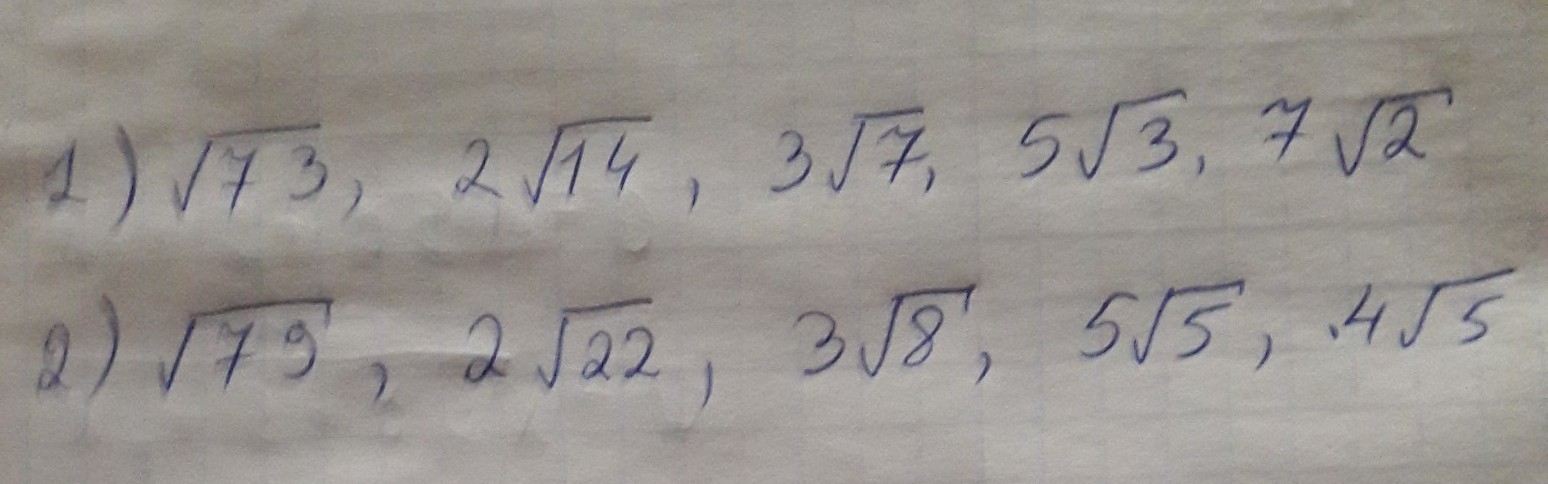 1) √73, 2√14, 3√7, 5√3, 7√2
2) √79, 2√22, 3√8, 5√5, .4√5